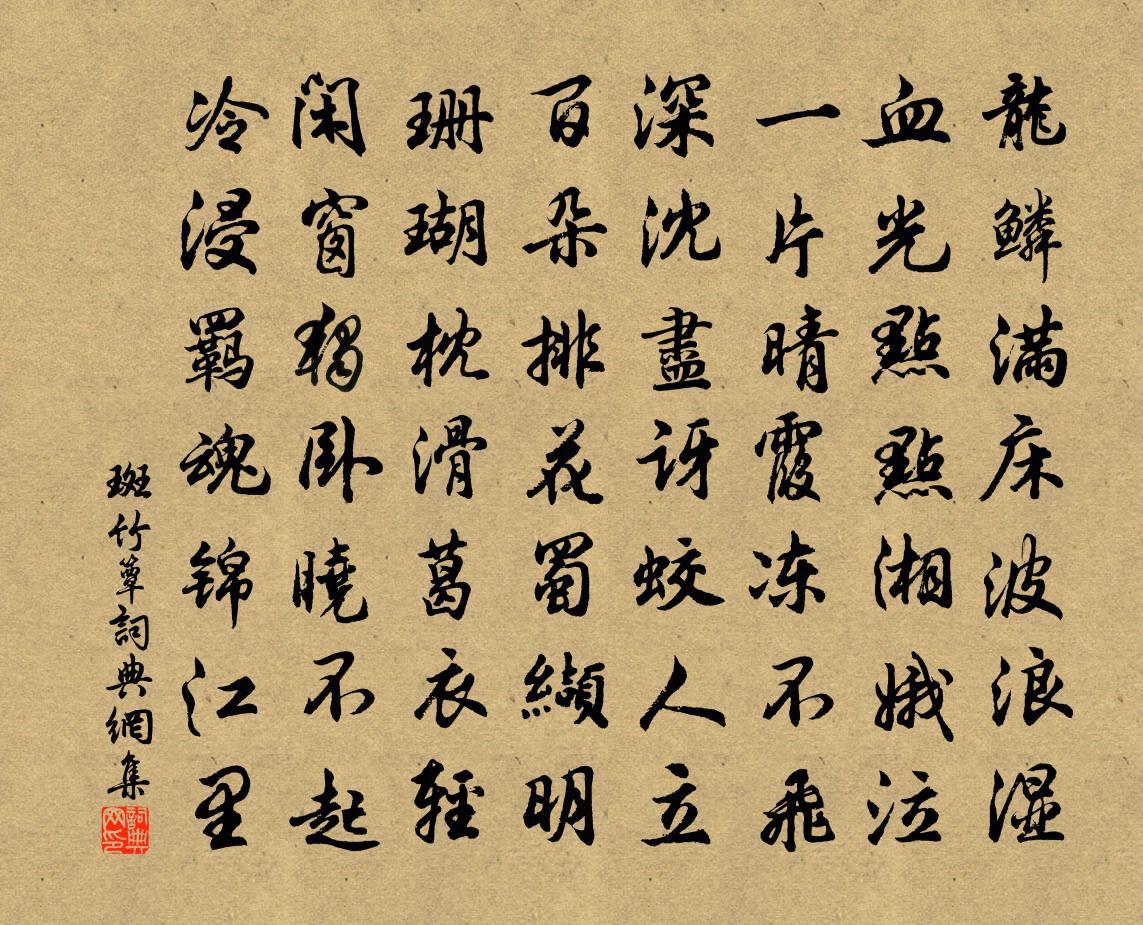 龍鳞满床波浪湿
血光點點湘娥泣
一片晴霞冻不飛
深沈盡訝蛟人立
百朵排花蜀纈明
珊瑚枕滑葛衣輕
闲窗獨卧曉不起
冷浸羁魂锦江里
斑竹簟詞典網集
詞典网印